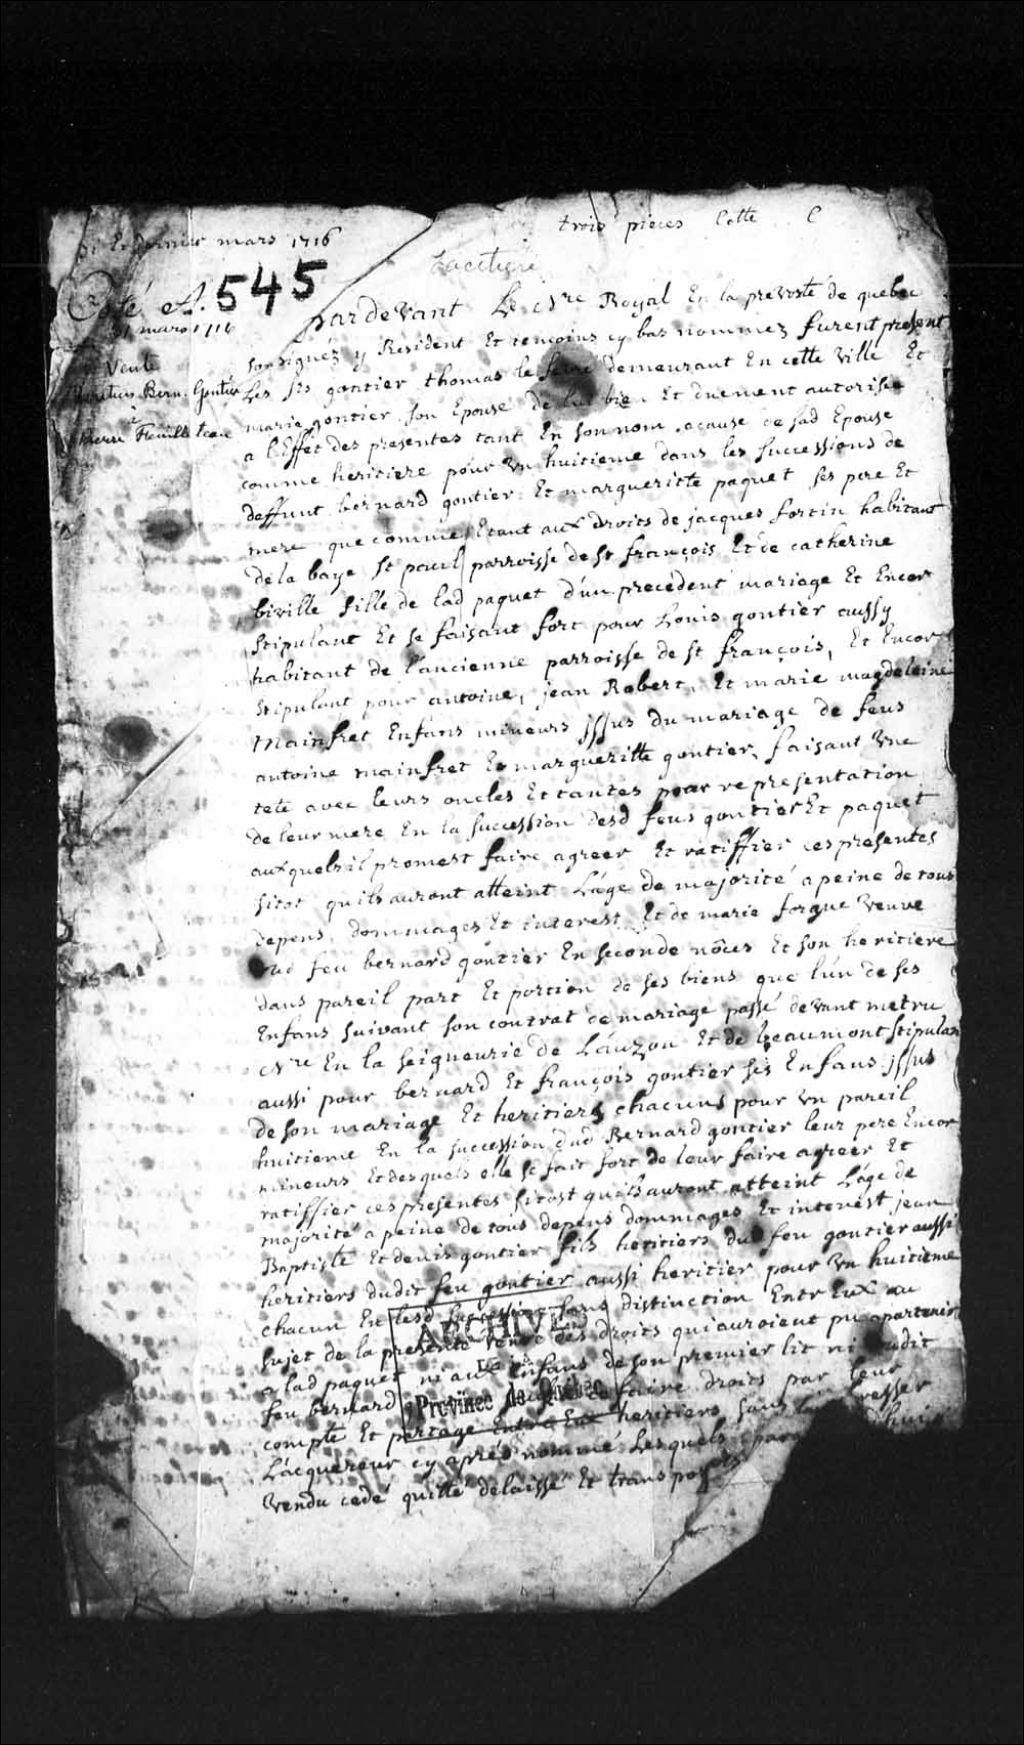 31 Et dernier mars 1716
trois pieces Cotte C
Cotté A. 545
31 mars 1716
Vente
Bern. Gontier
à
Pierre Feuilleteau
pardevant Le Nre Royal En la prevosté de quebec
sousignéz y Resident Et temoins cy bas nommez furent present
Les Srs gontier thomas le demeurant En cette ville Et
marie gontier son Epouse de lui bien Et duement autorisée
a l'Effet des presentes tant En son nom acause de sad Epouse
comme heritiere pour un huitieme dans les successions de
deffunt bernard gontier Et margueritte paquet ses pere Et
mere que comme Etant aux droits de jacques fortin habitant
de la baye St paul parroisse de St françois Et de catherine
biville fille de lad paquet d'un precedent mariage Et Encor
Stipulant Et se faisant fort pour Louis gontier aussy
habitant de l'ancienne parroisse de St françois, Et Encor
Stipulant pour antoine, jean Robert, Et marie magdeleine
Mainfret Enfans mineurs issus du mariage de feus
antoine mainfret Et margueritte gontier, faisant une
tete avec leurs oncles Et tantes pour representation
de leur mere En la succession desd feus gontier Et paquet
auxquels il promest faire agreer Et ratiffier ces presentes
sitot qu'ils auront atteint L'age de majorité a peine de tous
depens, dommages Et interest, Et de marie forgue veuve
dud feu bernard gontier En seconde nôces Et son heritiere
dans pareil part Et portion de ses biens que l'un de ses
Enfans suivant son contrat de mariage passé devant metru
Nre En la seigneurie de Lauzon Et de beaumont stipulan
aussi pour bernard Et françois gontier ses Enfans issus
de son mariage Et heritiers chacuns pour un pareil
huitieme En la succession dud Bernard gontier leur pere Encor
mineurs Et desquels elle se fait fort de leur faire agreer Et
ratiffier ces presentes sitost qu'ils auront atteint L'age de
majorité a peine de tous depens dommages Et interest jean
Baptiste Et denis gontier fils heritiers du feu gontier aussi
heritiers dudit feu gontier aussi heritier pour un huitieme
chacun En lesd succession sans distinction Entr Eux au
sujet de la presente vente des droits qui auroient pu apartenir
a lad paquet ni aux Enfans de son premier lit ni dudit
feu bernard faire droits par leur
compte Et partage Entre Eux heritiers sans
L'acquereur cy aprés nommé Lesquels
vendu cedé quitté delaissé Et transporté
ARCHIVES
DE LA
Province de Québec